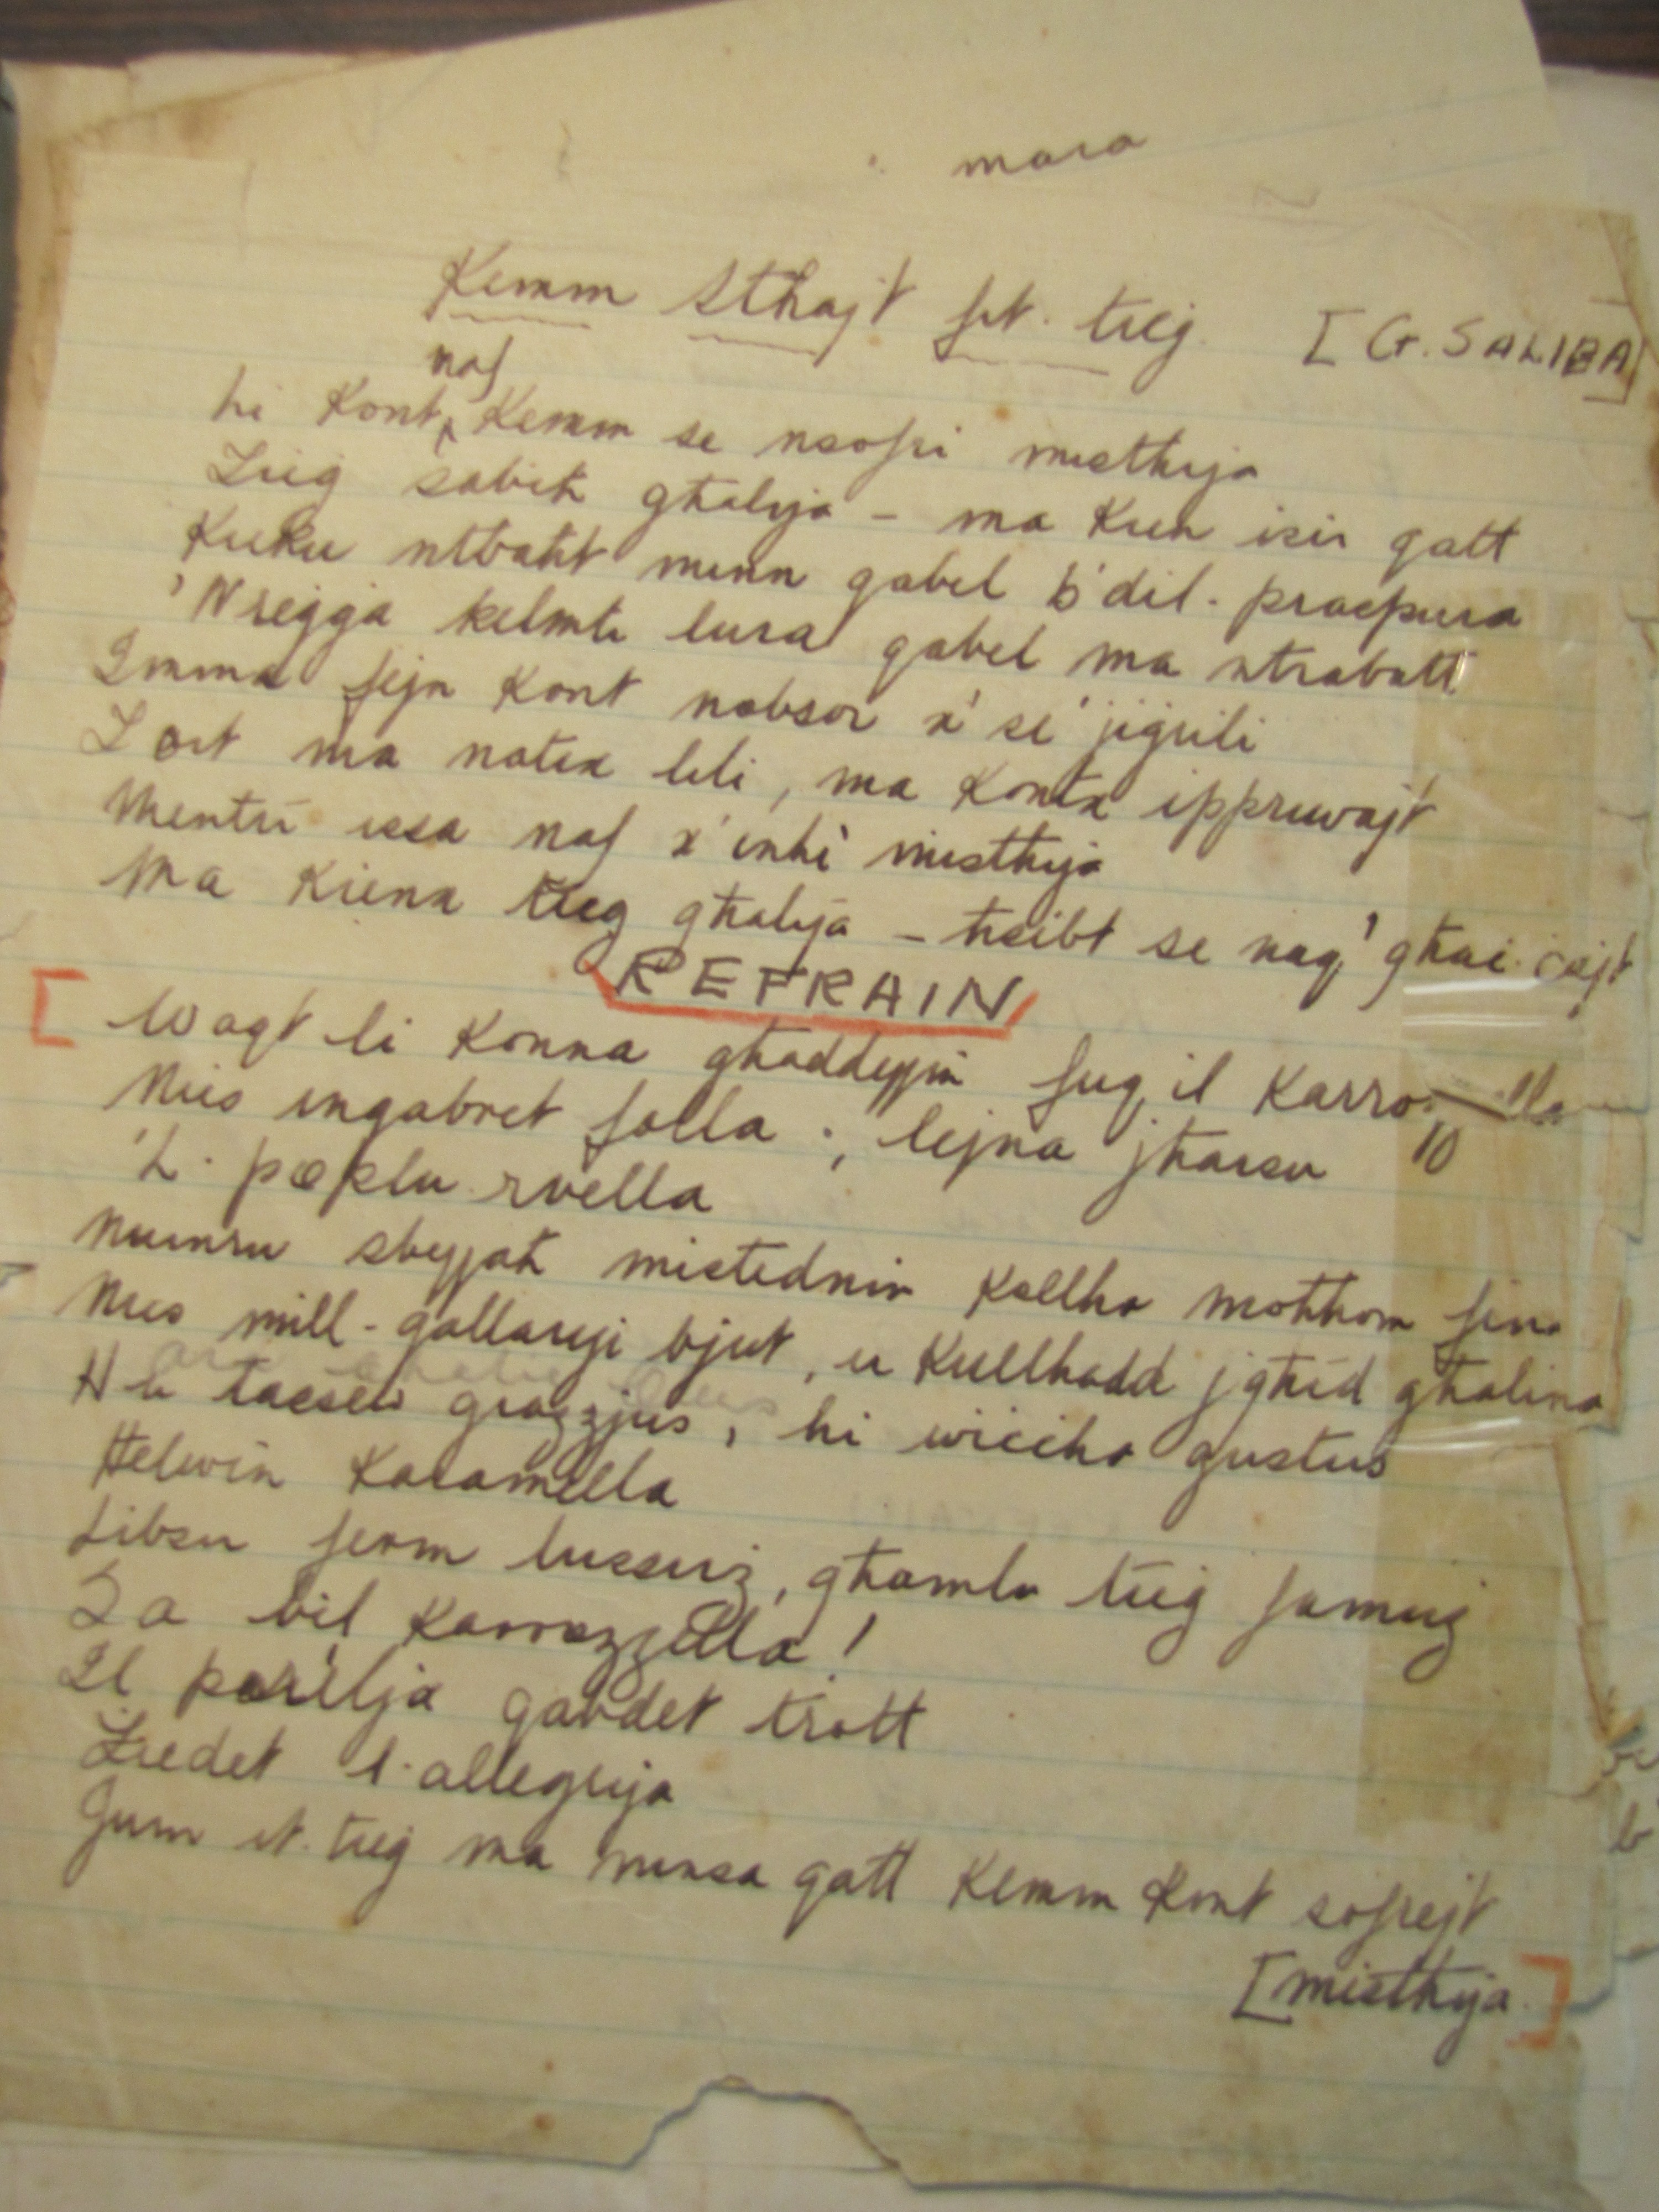 mara
Kemm stħajt fit-tieġ. [G. SALIBA]
naf
Li kont kemm se nsofri mistħija
Żieġ sabiħ għalija - ma kien isir qatt
Kieku ntbaħt minn qabel b'dil-praspura
'Nreġġa kelmti lura qabel ma ntrabatt
Imma fejn kont nobsor x'se jiġrili
Żort ma natix lili, ma kontx ippruvajt
Mentri issa naf x'inhi mistħija
Ma kienx tieġ għalija - ħsibt se naq' għaċ-ċajt
REFRAIN
[ Waqt li konna għaddejjin fuq il karro lla
Nies inġabret folla ; lejna jħarsu 10
'L-paplu rvella
Numru sbejjaħ mistednin kollha moħħom fina
Nies mill-gallariji bjut, u kullħadd jgħid għalina
H li taċsew grazzjus, hi wiċċha gustus
Ħelwin karamella
Libsu ferm lussuż, għamlu tieġ famuż
Sa bil karrozzella!
Il parilja qabdet trott
Żiedet l-allegrija
Jum it-tieġ ma ninsa qatt kemm kont sofrejt
[mistħija.]